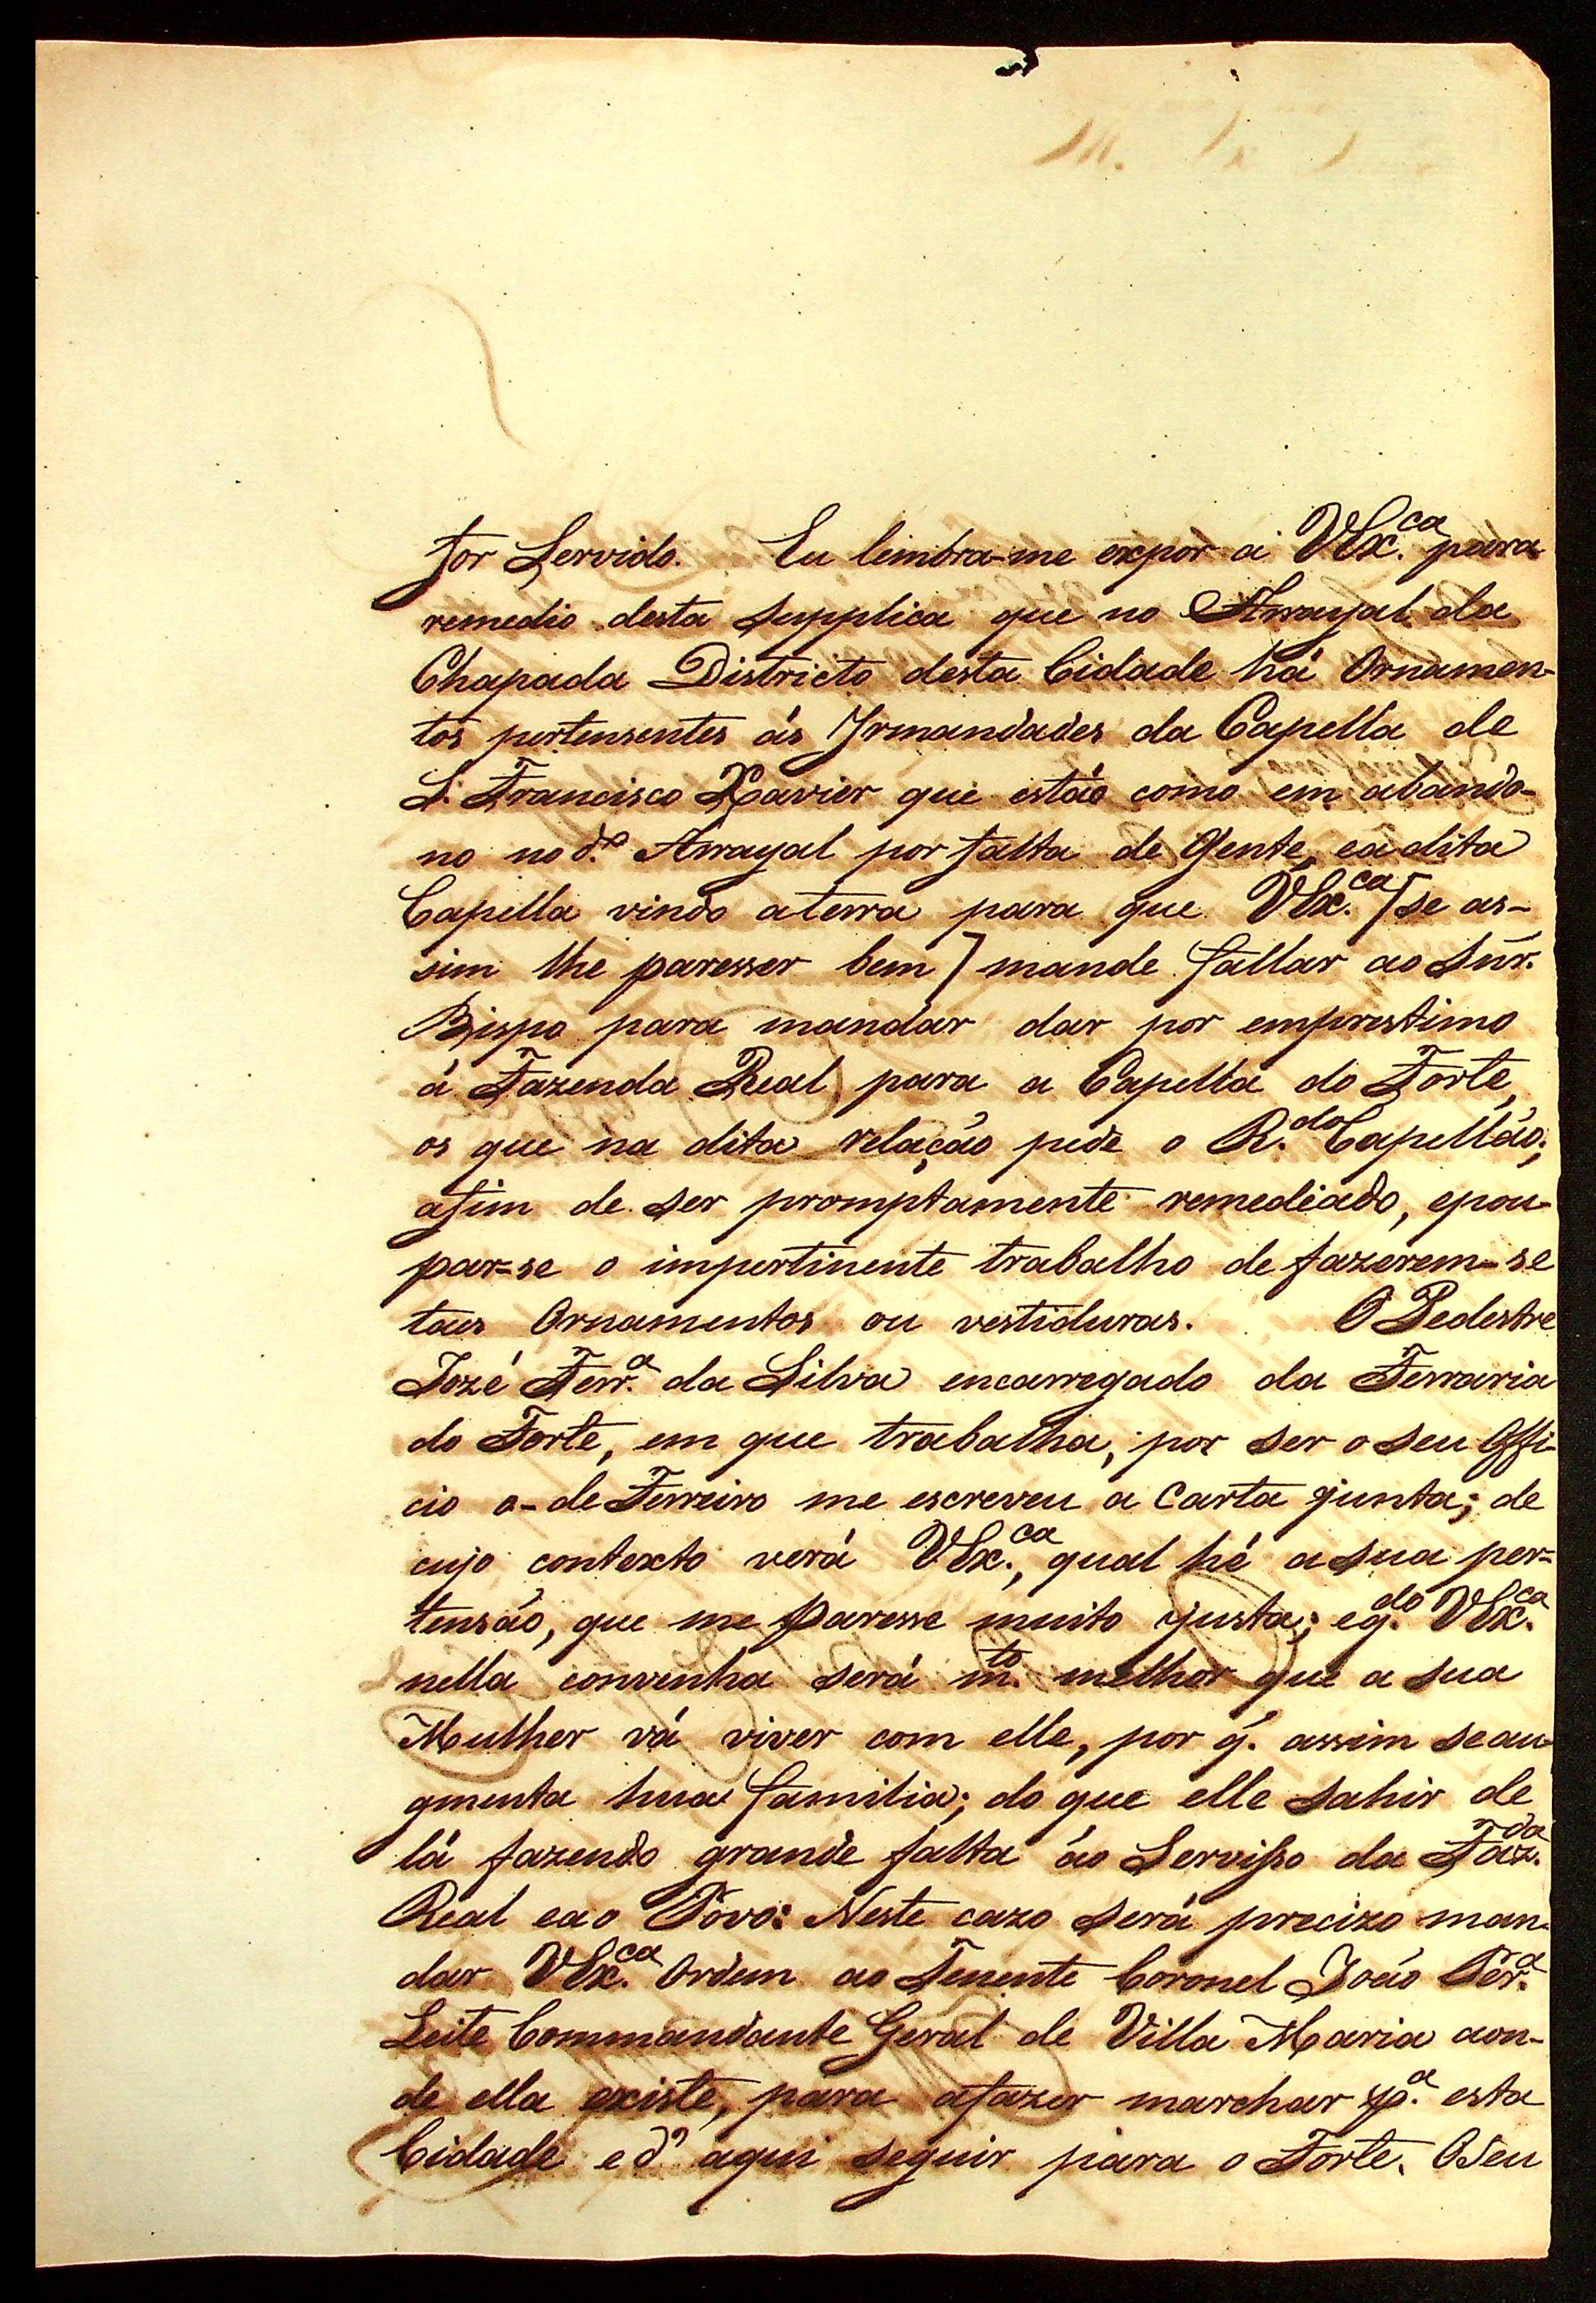 for Servido. Eu lembra-me expor a VEx.ca para
remedio desta supplica que no Arrayal da
Chapada Districto desta Cidade há Ornamen-
tos pertensentes ás Irmandades da Capella de
S. Francisco Xavier que estão como em abando-
no no d.o Arrayal por falta de Gente, ea dita
Capella vindo aterra para que VEx.ca [se as-
sim lhe paresser bem] mande fallar ao Snr.
Bispo para mandar dar por emprestimo
á Fazenda Real para a Capella do Forte,
os que na dita relação pede o R.do Capellão;
afim de ser promptamente remediado, epou-
par=se o impertinente trabalho de fazerem-se
taes Ornamentos ou vestiduras. O Pedestre
Jozé Ferr.a da Silva encarregado da Ferraria
do Forte, em que trabalha, por ser o seu Offi-
cio o-de Ferreiro me escreveu a Carta junta; de
cujo contexto verá VEx.ca, qual hé a sua per=
tensão, que me paresse muito justa; eq.do VEx.ca
nella convenha será m.to melhor que a sua
Mulher vá viver com elle, por q. assim seau-
gmenta hua familia; do que elle sahir de
lá fazendo grande falta ao Servisso da Faz.da
Real eao Povo: Neste cazo será precizo man-
dar VEx.ca Ordem ao Tenente Coronel João Per.a
Leite Commandante Geral de Villa Maria aon-
de ella existe, para afazer marchar p.a esta
Cidade e d' aqui seguir para o Forte. O Seu